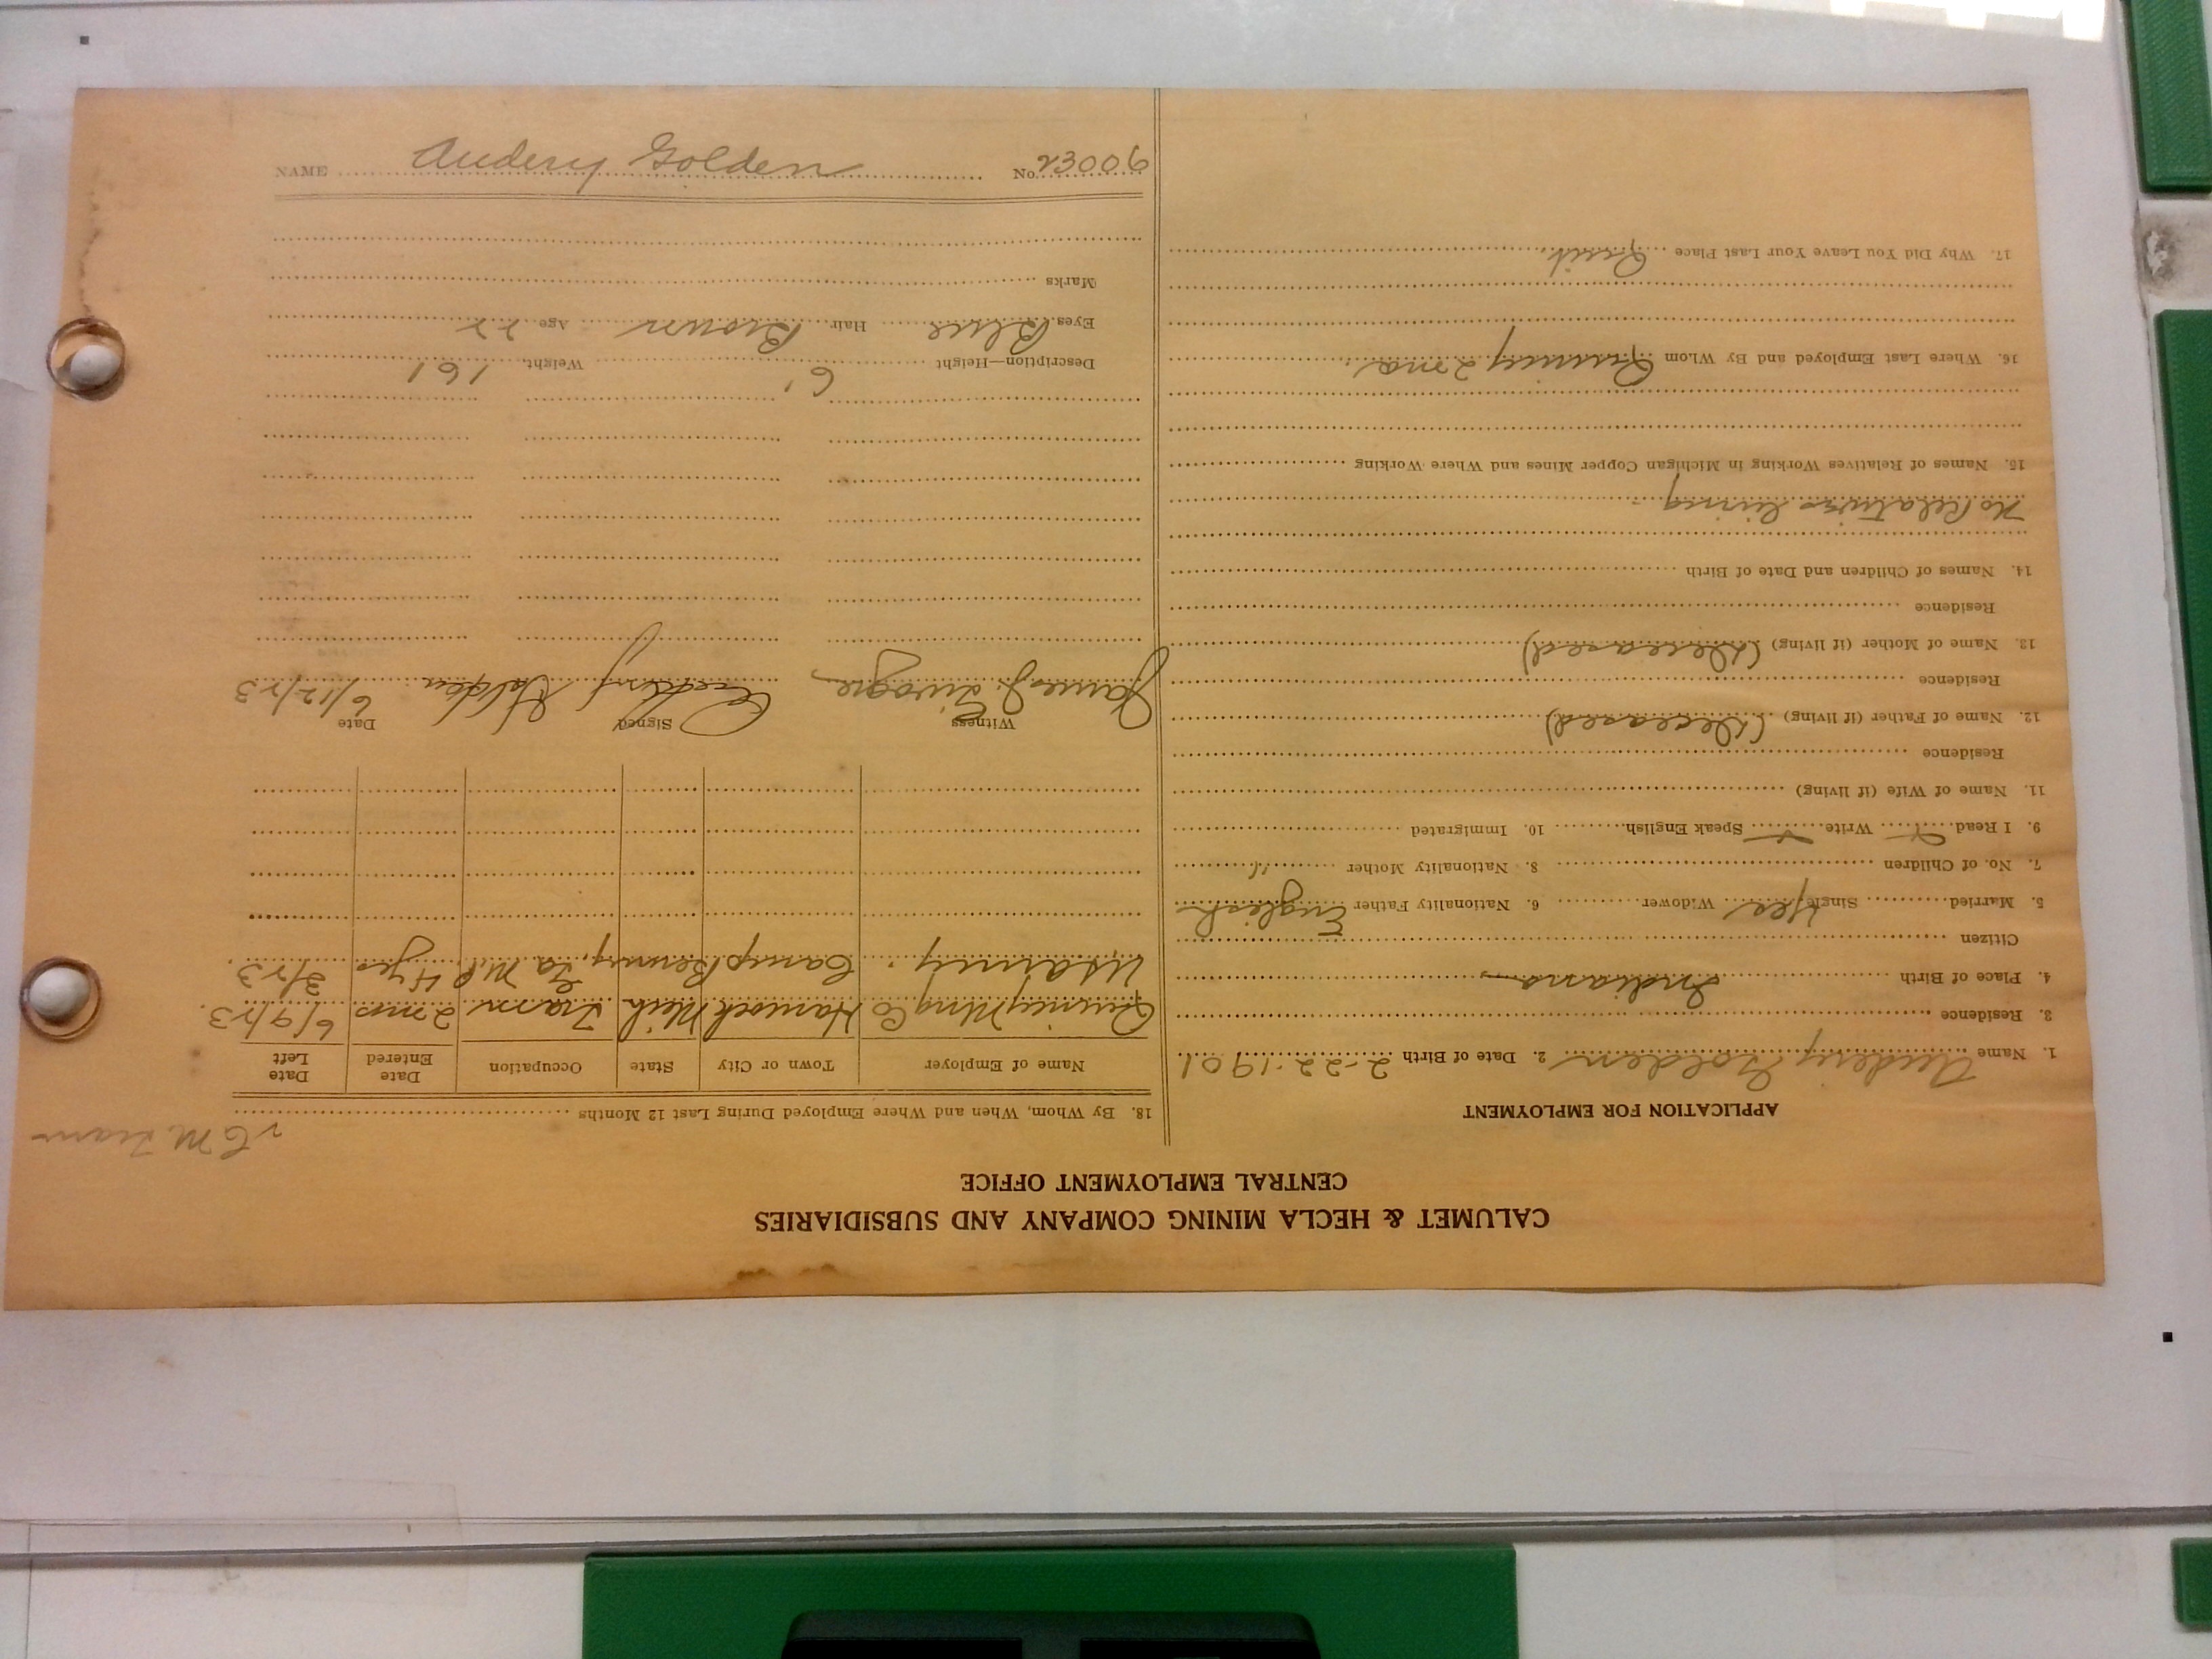 CALUMET & HECLA MINING COMPANY AND SUBSIDIARIES
CENTRAL EMPLOYMENT OFFICE
APPLICATION FOR EMPLOYMENT
1. Name Audery Golden 2. Date of Birth 2-22-1901
3. Residence
4. Place of Birth Indiana
Citizen
5. Married Single Yes Widower 6. Nationality Father English
7. No. of Children 8. Nationality Mother "
9. I Read Write Speak English 10. Immigrated
11. Name of Wife (if living)
Residence
12. Name of Father (if living) (Deceased)
Residence
13. Name of Mother (if living) (Deceased)
Residence
14. Names of Children and Date of Birth
No Relatives living
15. Names of Relatives Working in Michigan Copper Mines and Where Working
16. Where Last Employed and By Whom Quincy 2 mos.
17. Why Did You Leave Your Last Place Quit.
C M Tram
18. By Whom, When and Where Employed During Last 12 Months
Name of Employer Town or City State Occupation Date Entered Date Left
Quincy Mng Co Hancock Mich Tram 2 mos 6/9/23.
US army. Camp Benning, Ga M.P. 4 yrs 3/23.
Witness Signed Date
James J. Audery Golden. 6/12/23
Description—Height 6' Weight 161
Eyes Blue Hair Brown Age 22
Marks
NAME Audery Golden No. 23006